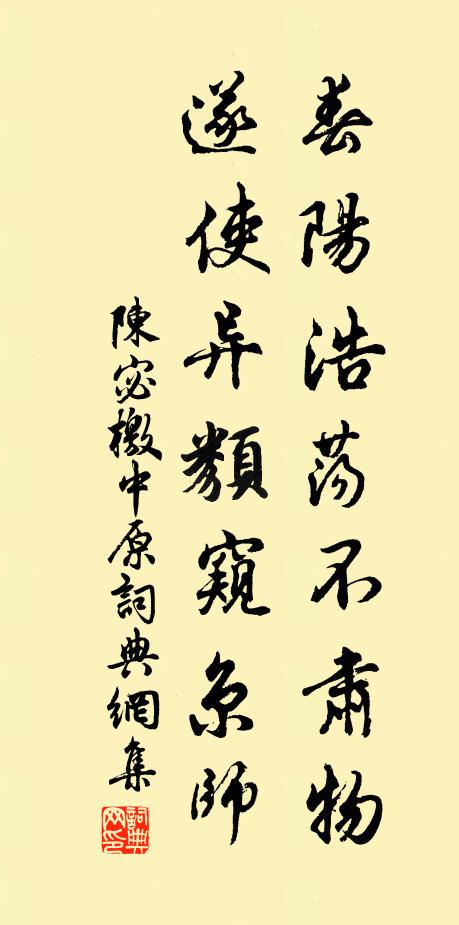 春陽浩荡不肅物
遂使异類窺京師
陳宓檄中原詞典網集
詞典网印